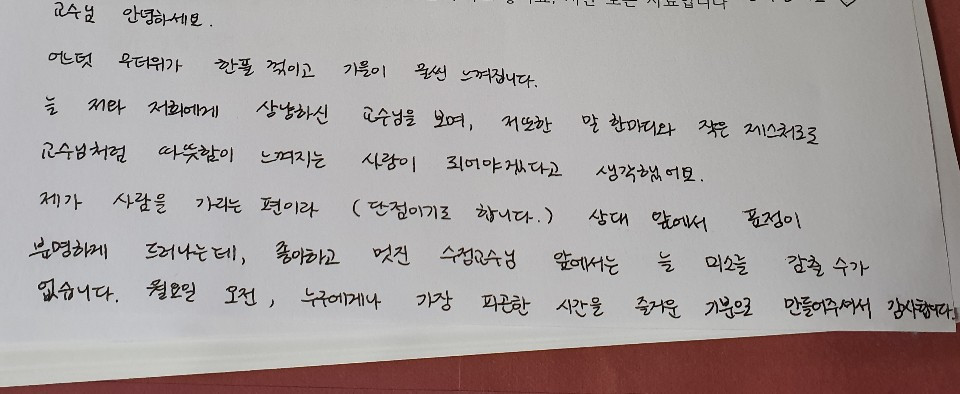 교수님 안녕하세요.
어느덧 무더위가 한풀 꺾이고 가을이 물씬 느껴집니다.
늘 저와 저희에게 상냥하신 교수님을 보며, 저또한 말 한마디와 작은 제스처로
교수님처럼 따뜻함이 느껴지는 사람이 되어야겠다고 생각했어요.
제가 사람을 가리는 편이라 (단점이기도 합니다.) 상대 앞에서 표정이
분명하게 드러나는데, 좋아하고 멋진 수정교수님 앞에서는 늘 미소를 감출 수가
없습니다. 월요일 오전, 누구에게나 가장 피곤한 시간을 즐거운 기분으로 만들어주셔서 감사합니다.